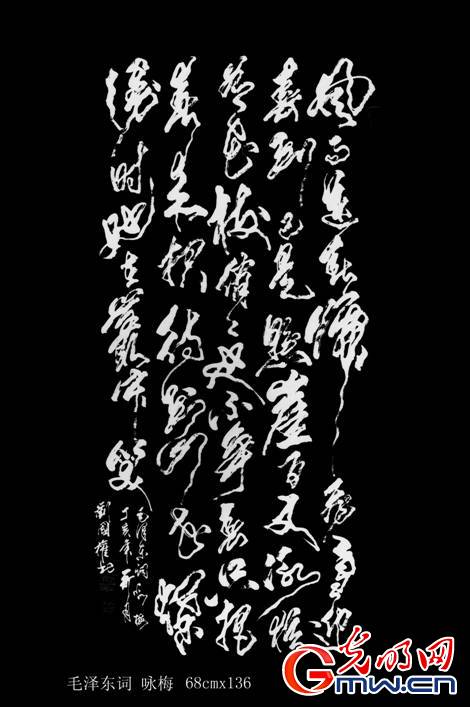 风雨送春归飞雪迎
春到已是悬崖百丈冰犹
有花枝俏俏也不争春只把
春来报待到山花烂
漫时她在丛中笑
毛泽东词咏梅
丁亥年
毛泽东词 咏梅 68cmx136
光明网
GMW.cn